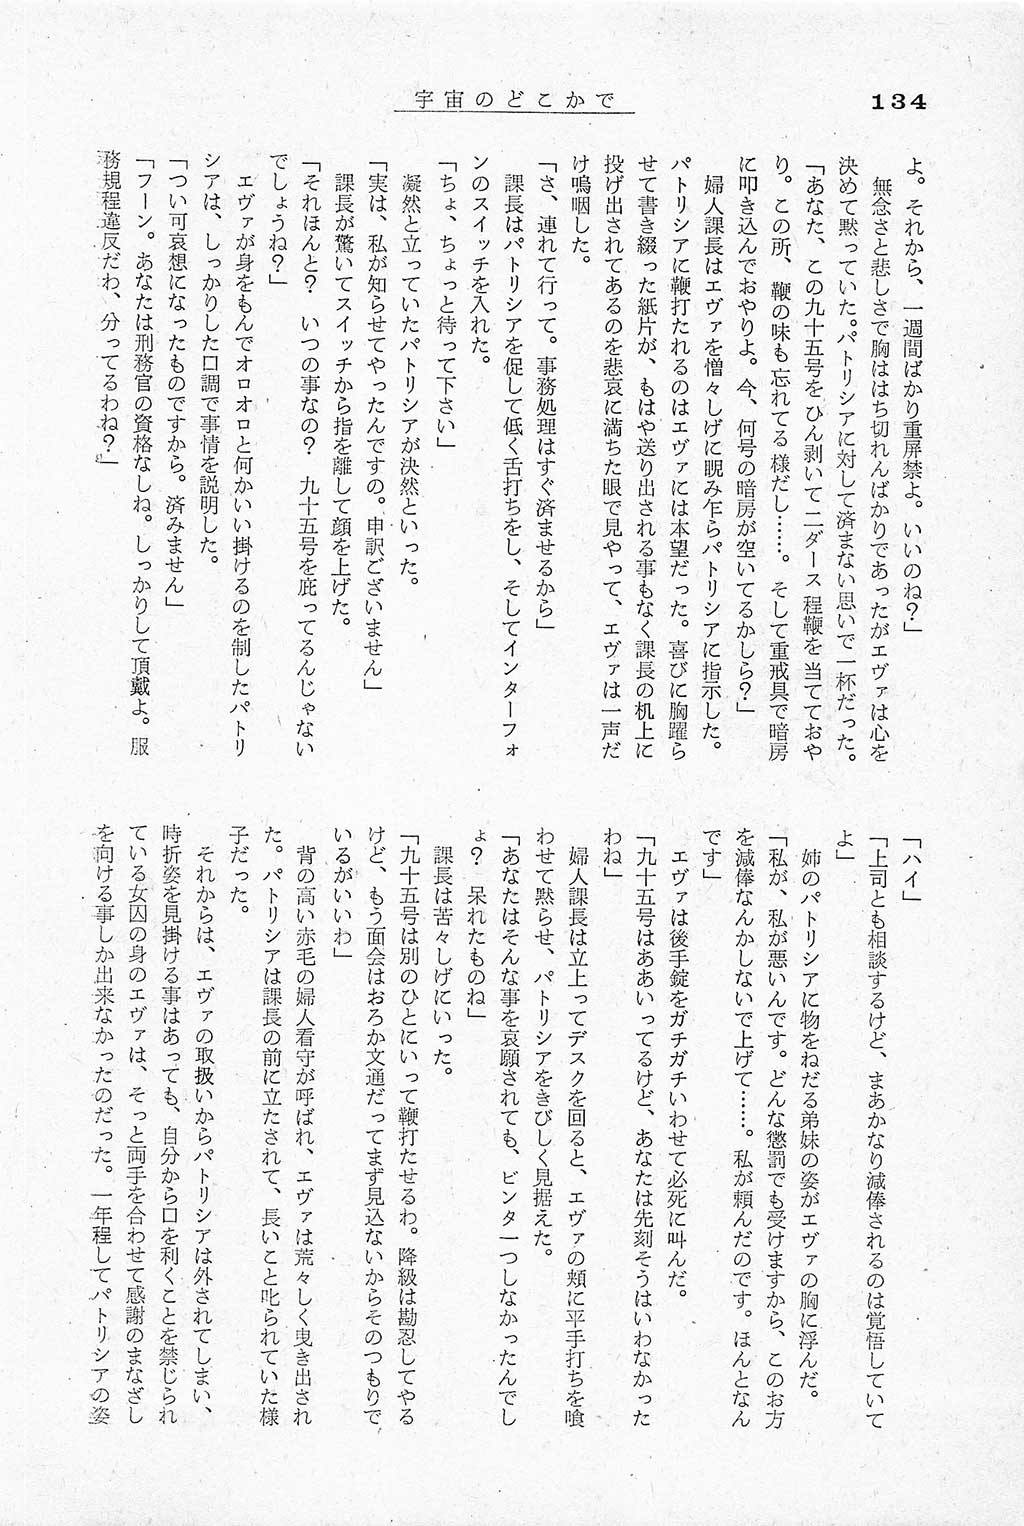 宇宙のどこかで
134
よ。それから、一週間ばかり重屏禁よ。いいのね？」
　無念さと悲しさで胸ははち切れんばかりであったがエヴァは心を
決めて黙っていた。パトリシアに対して済まない思いで一杯だった。
「あなた、この九十五号をひん剥いて二ダース程鞭を当てておや
り。この所、鞭の味も忘れてる様だし……。そして重戒具で暗房
に叩き込んでおやりよ。今、何号の暗房が空いてるかしら？」
　婦人課長はエヴァを憎々しげに睨み乍らパトリシアに指示した。
パトリシアに鞭打たれるのはエヴァには本望だった。喜びに胸躍ら
せて書き綴った紙片が、もはや送り出される事もなく課長の机上に
投げ出されてあるのを悲哀に満ちた眼で見やって、エヴァは一声だ
け嗚咽した。
「さ、連れて行って。事務処理はすぐ済ませるから」
　課長はパトリシアを促して低く舌打ちをし、そしてインターフォ
ンのスイッチを入れた。
「ちょ、ちょっと待って下さい」
　凝然と立っていたパトリシアが決然といった。
「実は、私が知らせてやったんですの。申訳ございません」
　課長が驚いてスイッチから指を離して顔を上げた。
「それほんと？　いつの事なの？　九十五号を庇ってるんじゃない
でしょうね？」
　エヴァが身をもんでオロオロと何かいい掛けるのを制したパトリ
シアは、しっかりした口調で事情を説明した。
「つい可哀想になったものですから。済みません」
「フーン。あなたは刑務官の資格なしね。しっかりして頂戴よ。服
務規程違反だわ、分ってるわね？」
「ハイ」
「上司とも相談するけど、まあかなり減俸されるのは覚悟していて
よ」
　姉のパトリシアに物をねだる弟妹の姿がエヴァの胸に浮んだ。
「私が、私が悪いんです。どんな懲罰でも受けますから、このお方
を減俸なんかしないで上げて……。私が頼んだのです。ほんとなん
です」
　エヴァは後手錠をガチガチいわせて必死に叫んだ。
「九十五号はああいってるけど、あなたは先刻そうはいわなかった
わね」
　婦人課長は立上ってデスクを回ると、エヴァの頬に平手打ちを喰
わせて黙らせ、パトリシアをきびしく見据えた。
「あなたはそんな事を哀願されても、ビンタ一つしなかったんでし
ょ？　呆れたものね」
　課長は苦々しげにいった。
「九十五号は別のひとにいって鞭打たせるわ。降級は勘忍してやる
けど、もう面会はおろか文通だってまず見込ないからそのつもりで
いるがいいわ」
　背の高い赤毛の婦人看守が呼ばれ、エヴァは荒々しく曳き出され
た。パトリシアは課長の前に立たされて、長いこと叱られていた様
子だった。
　それからは、エヴァの取扱いからパトリシアは外されてしまい、
時折姿を見掛ける事はあっても、自分から口を利くことを禁じられ
ている女囚の身のエヴァは、そっと両手を合わせて感謝のまなざし
を向ける事しか出来なかったのだった。一年程してパトリシアの姿